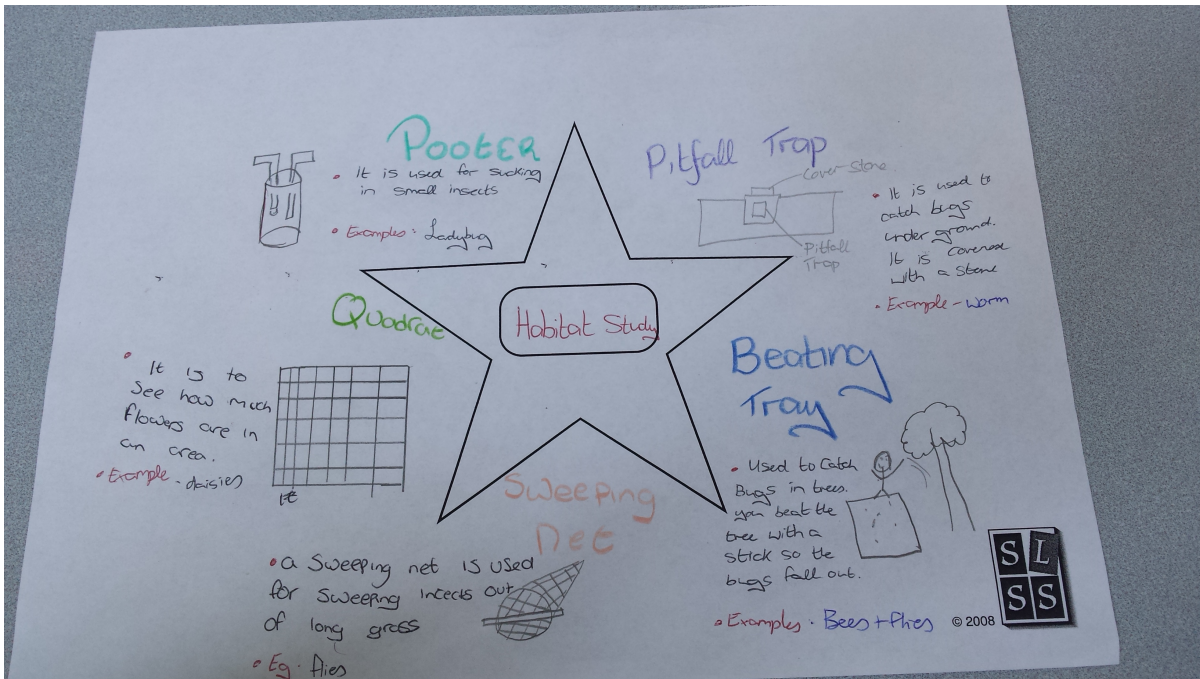 Pooter
It is used for sucking
in small insects
Examples · Ladybug
Pitfall Trap
Cover Stone
Pitfall
Trap
It is used to
catch bugs
under ground.
It is covered
with a stone
Example - worm
Habitat Study
Quadrat
It is to
See how much
flowers are in
an area.
Example · daisies
Beating
Tray
Used to Catch
Bugs in trees.
you beat the
tree with a
stick so the
bugs fall out.
Examples · Bees + flies
Sweeping
Net
a Sweeping net is used
for sweeping intects out
of long grass
Eg · flies
© 2008
SL
SS